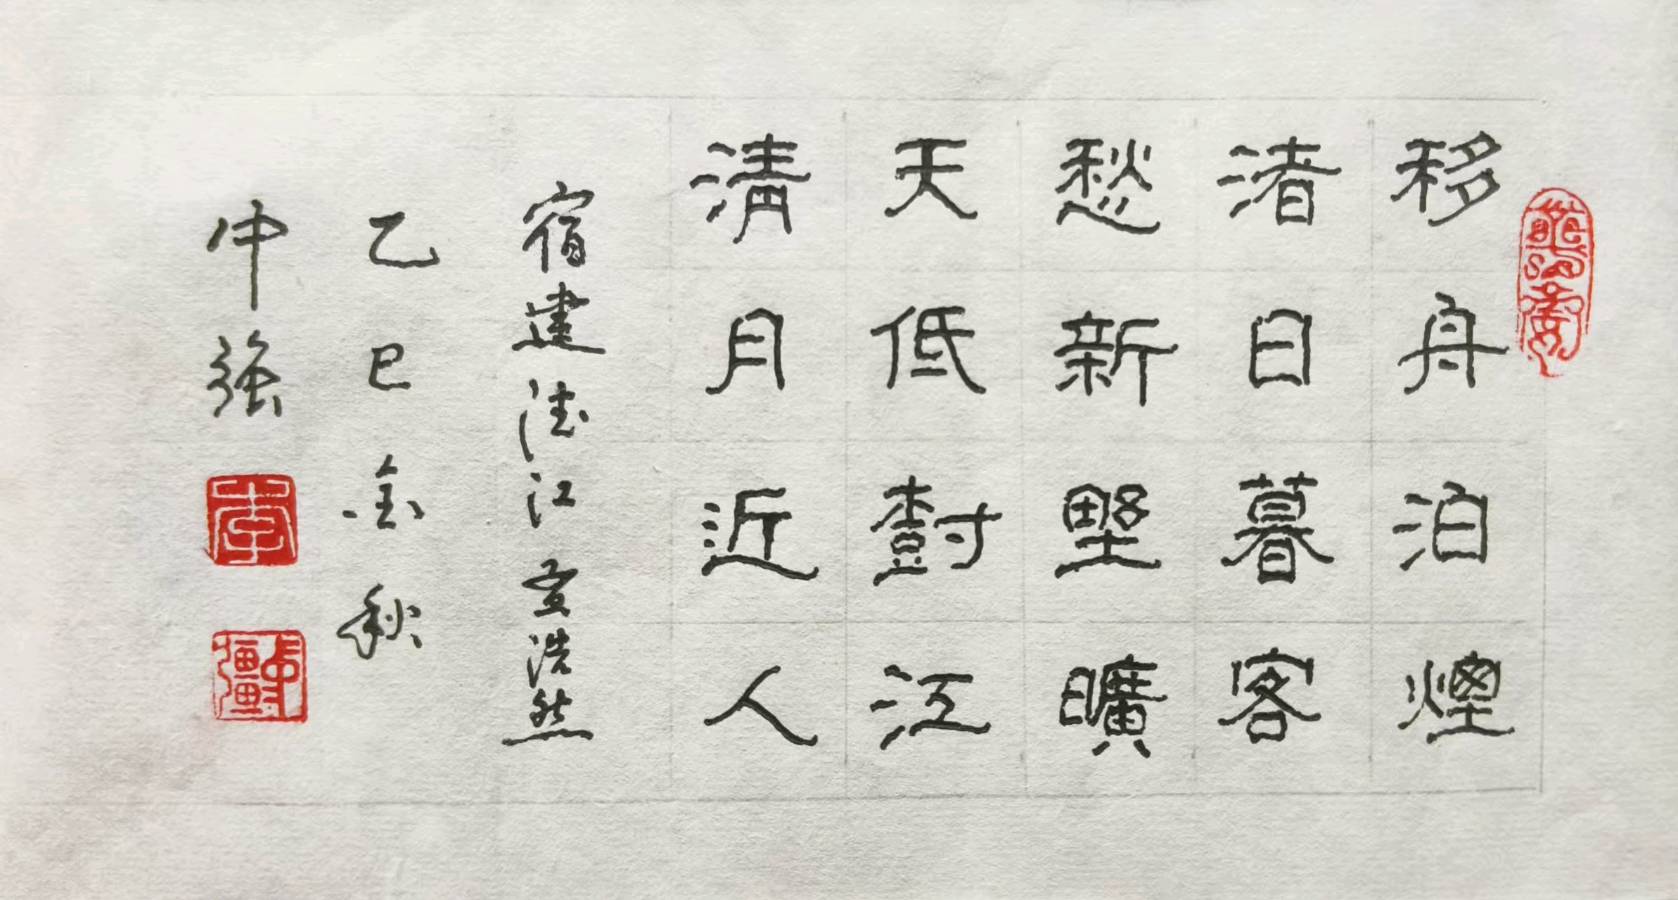 移舟泊煙
渚日暮客
愁新野曠
天低樹江
清月近人
宿建德江 孟浩然
乙巳金秋
仲強